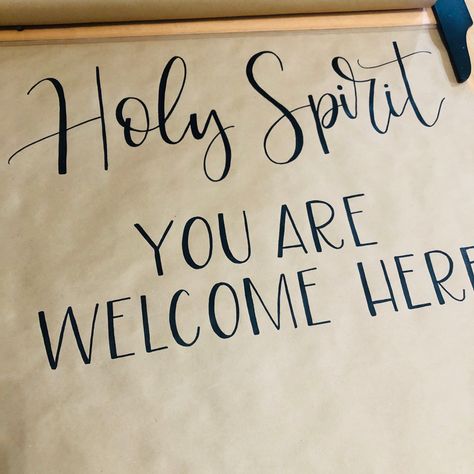 Holy Spirit
YOU ARE
WELCOME HERE